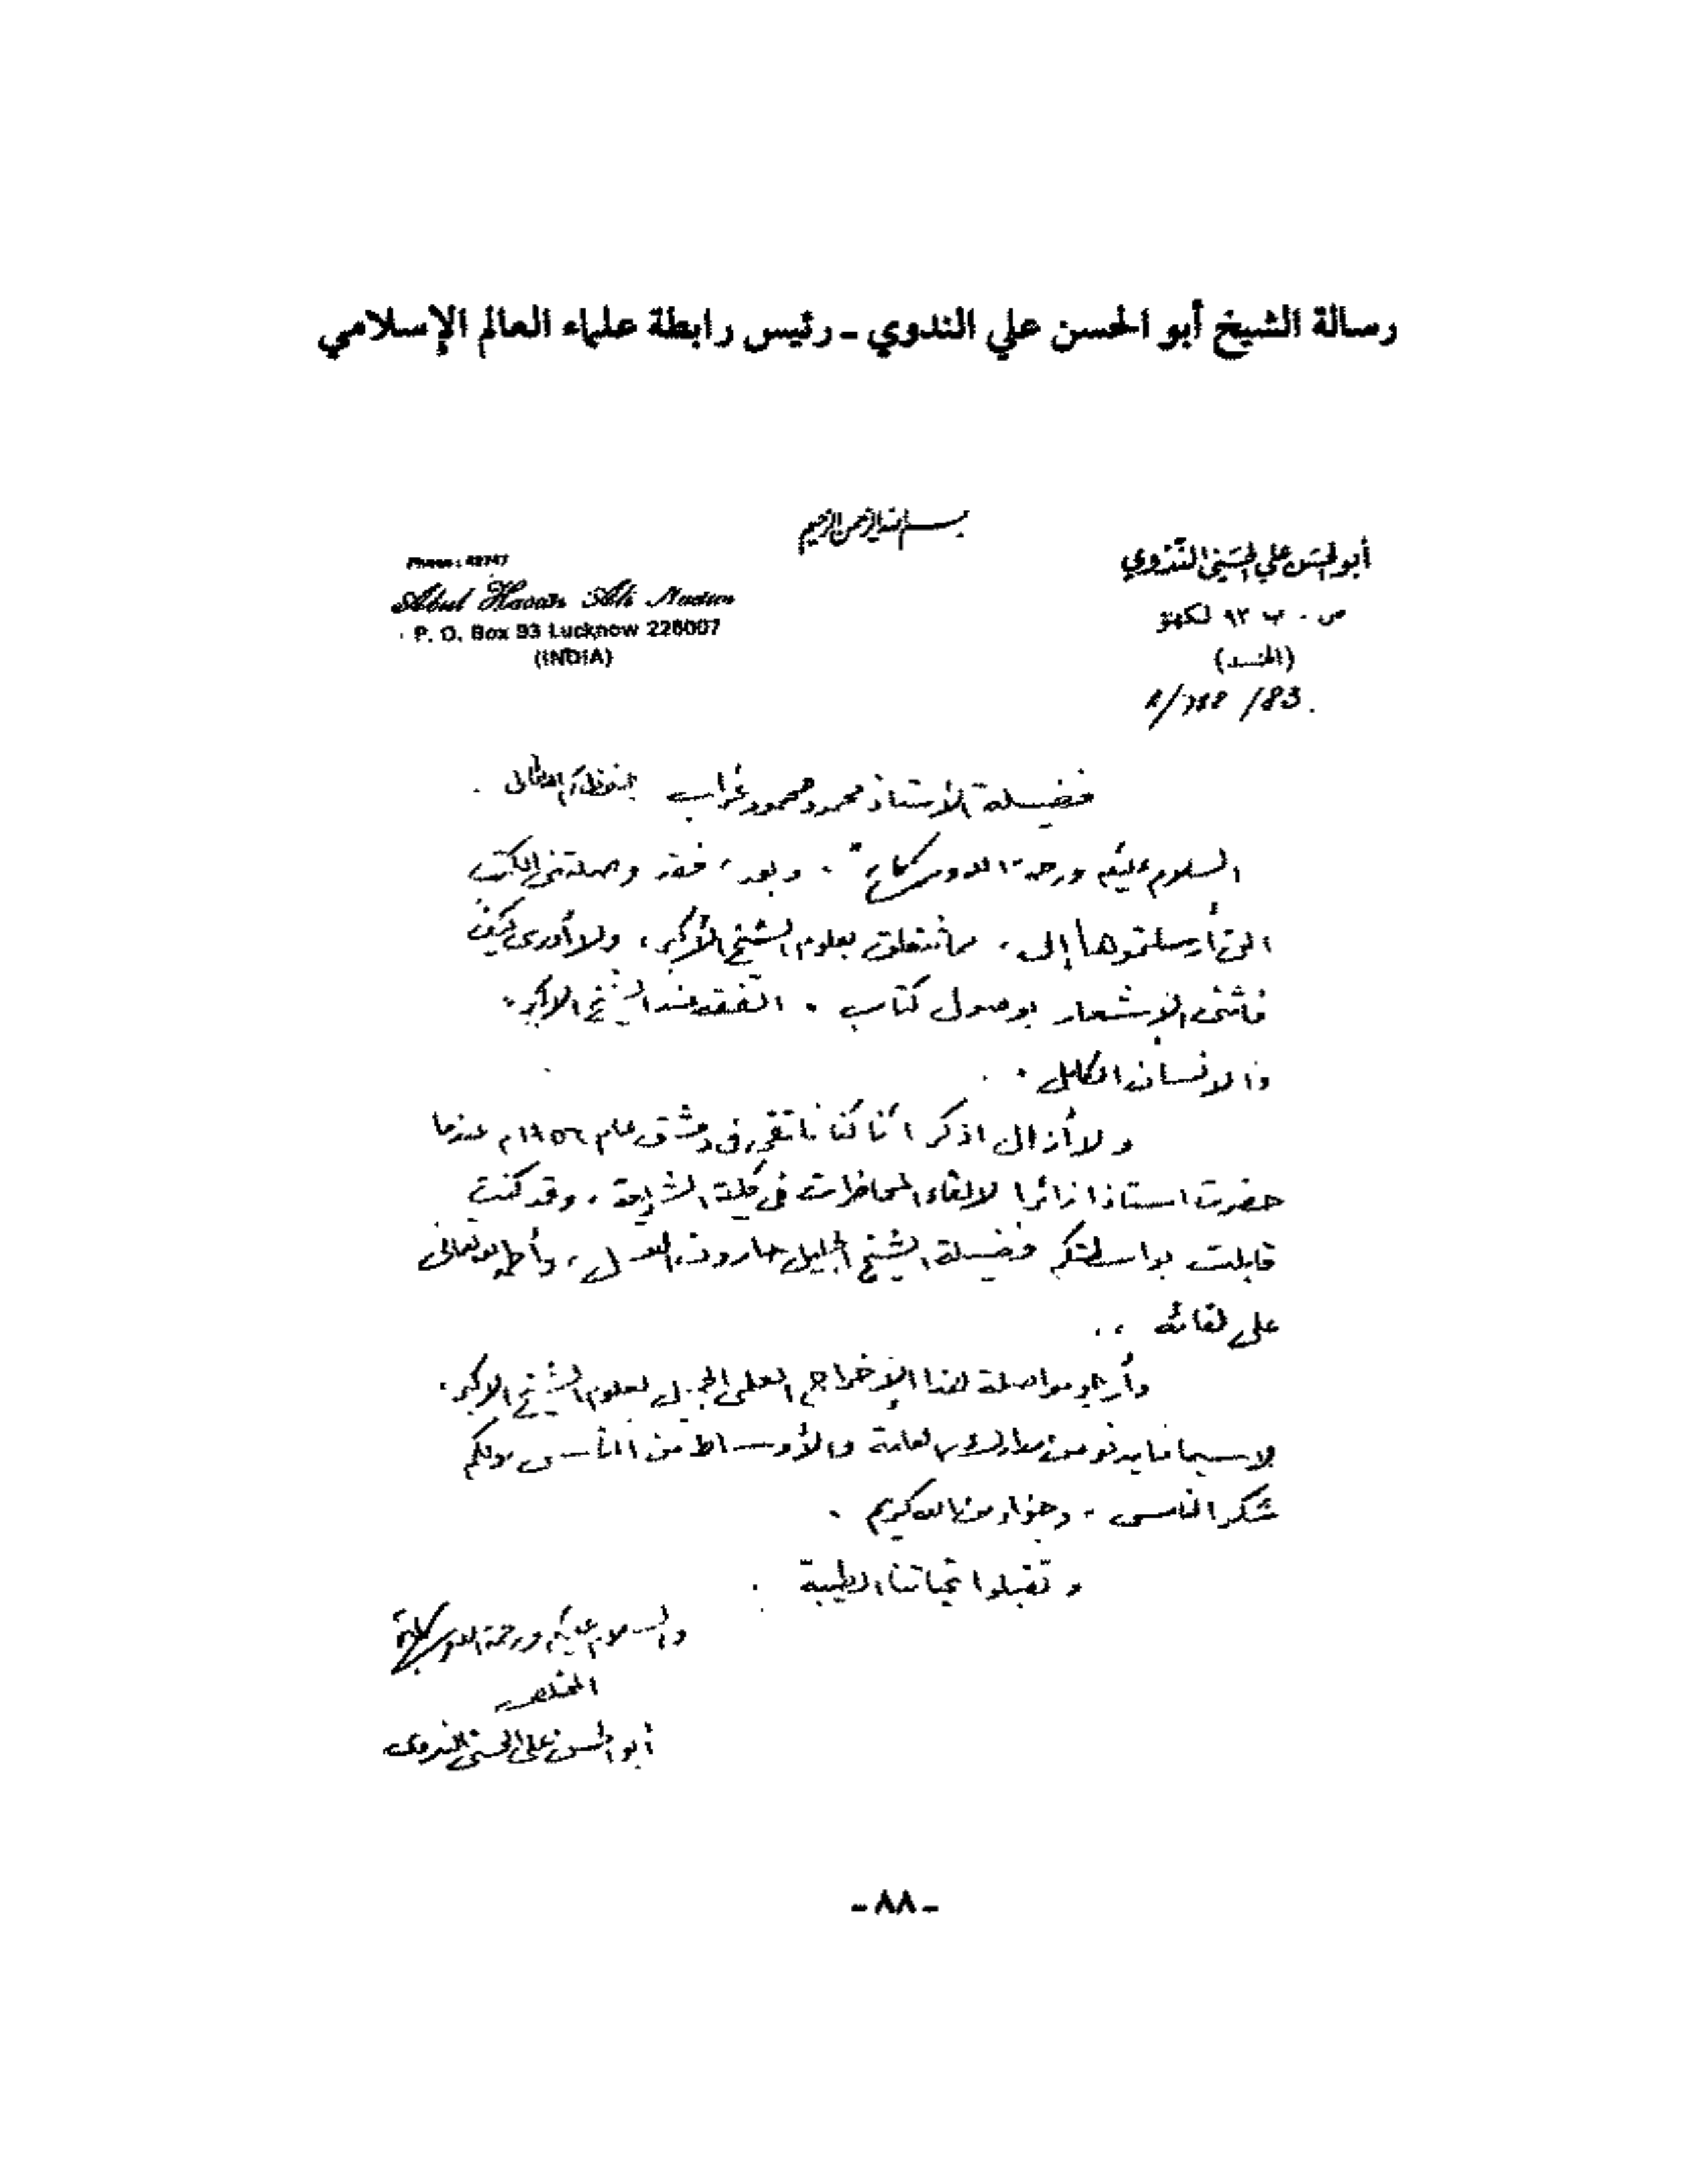 رسالة الشيخ أبو الحسن علي الندوي ـ رئيس رابطة علماء العالم الإسلامي
بسم الله الرحمن الرحيم
أبو الحسن علي الحسني الندوي
ص . ب ٩٣ لكهنؤ
(الهند)
Abul Hasan Ali Nadwi
P. O. Box 93 Lucknow 226007
(INDIA)
فضيلة الأستاذ محمود محمود غراب يحفظه الله تعالى .
السلام عليكم ورحمة الله وبركاته . وبعد ، فقد وصلتني الكتب
التي أرسلتموها إلى ، مما تتعلق بعلوم الشيخ الأكبر ، ولا أدري كيف
فاتني الإشعار بوصول كتاب . الفقه عند الشيخ الاكبر .
والانسان الكامل .
ولا أزال اذكر اننا كنا في دمشق عام ١٩٥٦م عندما
حضرت استاذا زائرا لالقاء المحاضرات في كلية الشريعة ، وقد كنت
قابلت بواسطتكم فضيلة الشيخ الجليل ، تعالى
على لقائه ..
وأرجو مواصلة هذا الإخراج العلمي الجميل لعلوم الشيخ الاكبر ،
لاسيما ما يدنو من مدارك العامة والأوساط من الناس ولكم
شكر الناس ، وجزاء من الله كريم .
وتقبلوا تحياتنا الطيبة .
والسلام عليكم ورحمة الله وبركاته
المخلص
أبو الحسن علي الحسني الندوي
ـ ٨٨ ـ